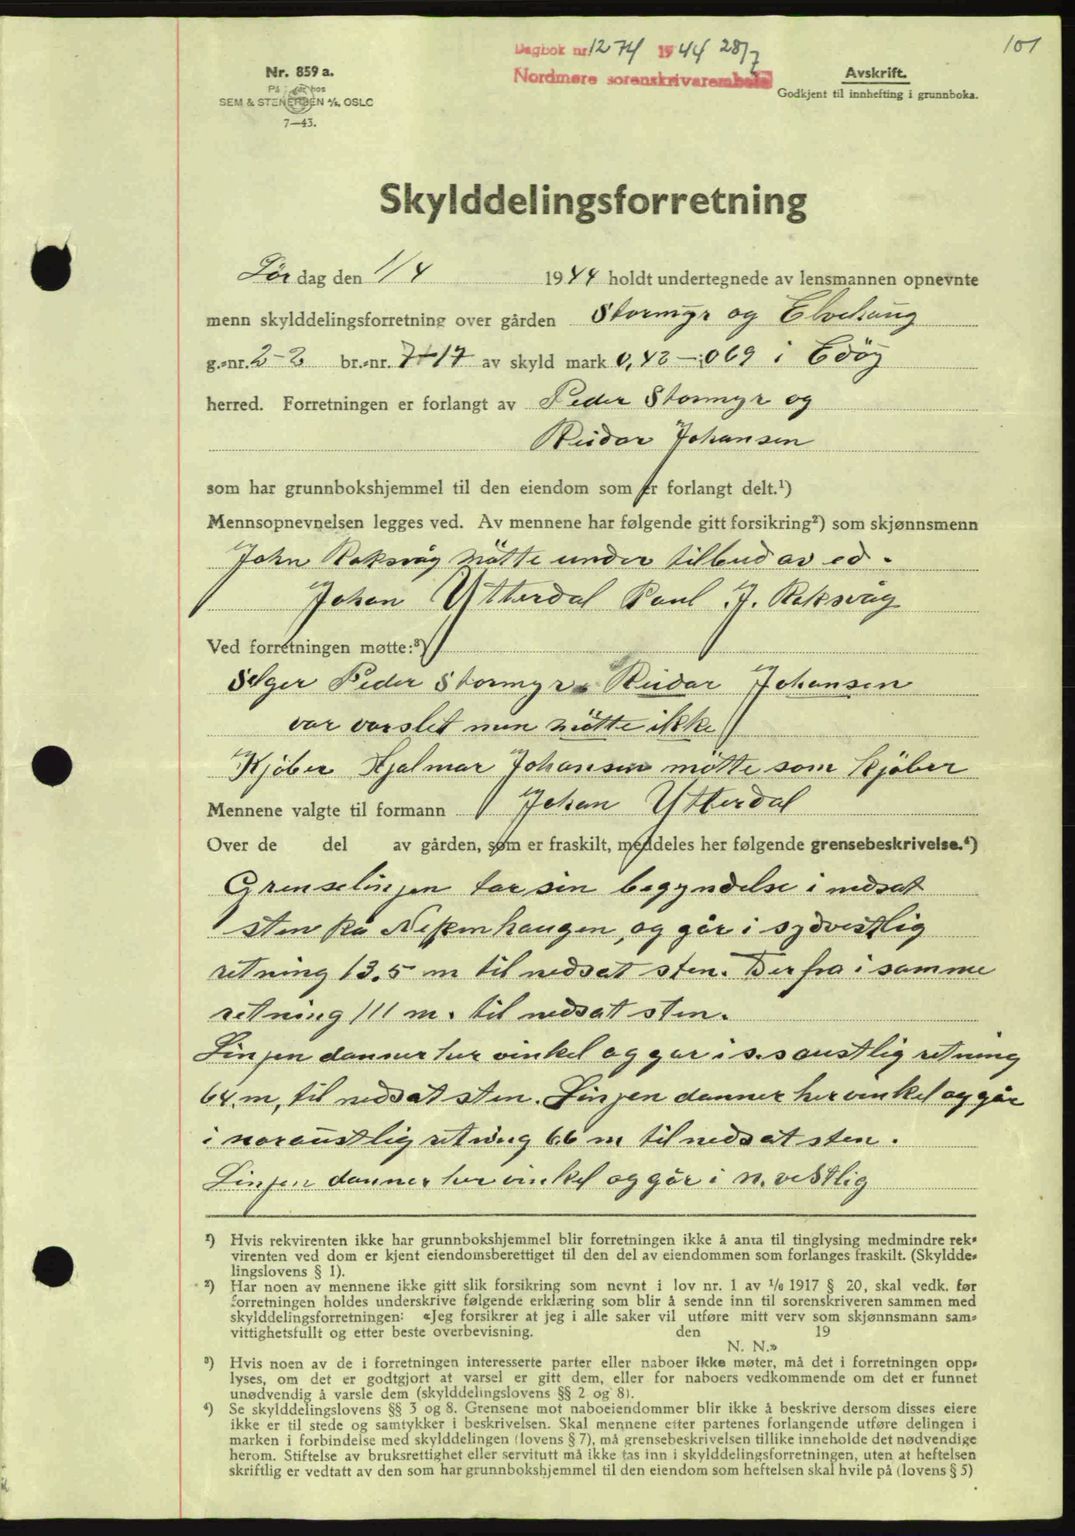 101
Dagbok nr. 1274 1944 28/7
Nordmøre sorenskrivarembete
Nr. 859 a.
SEM & STENERSEN A/S, OSLO
7—43.
Avskrift.
Godkjent til innhefting i grunnboka.
Skylddelingsforretning
Lør dag den 1/4 1944 holdt undertegnede av lensmannen opnevnte
menn skylddelingsforretning over gården Stormyr og Elvehaug
g.-nr. 2-2 br.-nr. 7-17 av skyld mark 0,43 - 069 i Edöy
herred. Forretningen er forlangt av Peder Stormyr og
Reidar Johansen
som har grunnbokshjemmel til den eiendom som er forlangt delt.¹)
Mennsopnevnelsen legges ved. Av mennene har følgende gitt forsikring²) som skjønnsmenn
John Roksvåg mötte under tilbud av ed.
Johan Ytterdal Paul J. Roksvåg
Ved forretningen møtte:³)
Selger Peder Stormyr. Reidar Johansen
var varslet men mötte ikke
Kjöber Hjalmar Johansen mötte som kjöber
Mennene valgte til formann Johan Ytterdal
Over de del av gården, som er fraskilt, meddeles her følgende grensebeskrivelse.⁴)
Grenselinjen tar sin begyndelse i nedsat
sten på haugen, og går i sydvestlig
retning 13,5 m til nedsat sten. Derfra i samme
retning 111 m. til nedsat sten.
Linjen danner her vinkel og gar i s.saustlig retning
64. m, til nedsat sten. Linjen danner her vinkel og går
i noraustlig retning 66 m til nedsat sten.
Linjen danner her vinkel og går i n. vestlig
¹) Hvis rekvirenten ikke har grunnbokshjemmel blir forretningen ikke å anta til tinglysing medmindre rek-
virenten ved dom er kjent eiendomsberettiget til den del av eiendommen som forlanges fraskilt. (Skyldde-
lingslovens § 1).
²) Har noen av mennene ikke gitt slik forsikring som nevnt i lov nr. 1 av 1/6 1917 § 20, skal vedk. før
forretningen holdes underskrive følgende erklæring som blir å sende inn til sorenskriveren sammen med
skylddelingsforretningen: «Jeg forsikrer at jeg i alle saker vil utføre mitt verv som skjønnsmann sam-
vittighetsfullt og etter beste overbevisning. den 19
N. N.»
³) Hvis noen av de i forretningen interesserte parter eller naboer ikke møter, må det i forretningen opp-
lyses, om det er godtgjort at varsel er gitt dem, eller for naboers vedkommende om det er funnet
unødvendig å varsle dem (skylddelingslovens §§ 2 og 8).
⁴) Se skylddelingslovens §§ 3 og 8. Grensene mot naboeiendommer blir ikke å beskrive dersom disses eiere
ikke er til stede og samtykker i beskrivelsen. Skal mennene etter partenes forlangende utføre delingen i
marken i forbindelse med skylddelingen (lovens § 7), må grensebeskrivelsen tillike inneholde det nødvendige
herom. Stiftelse av bruksrettighet eller servitutt må ikke tas inn i skylddelingsforretningen, uten at heftelsen
skriftlig er vedtatt av den som har grunnbokshjemmel til den eiendom som heftelsen skal hvile på (lovens § 5)